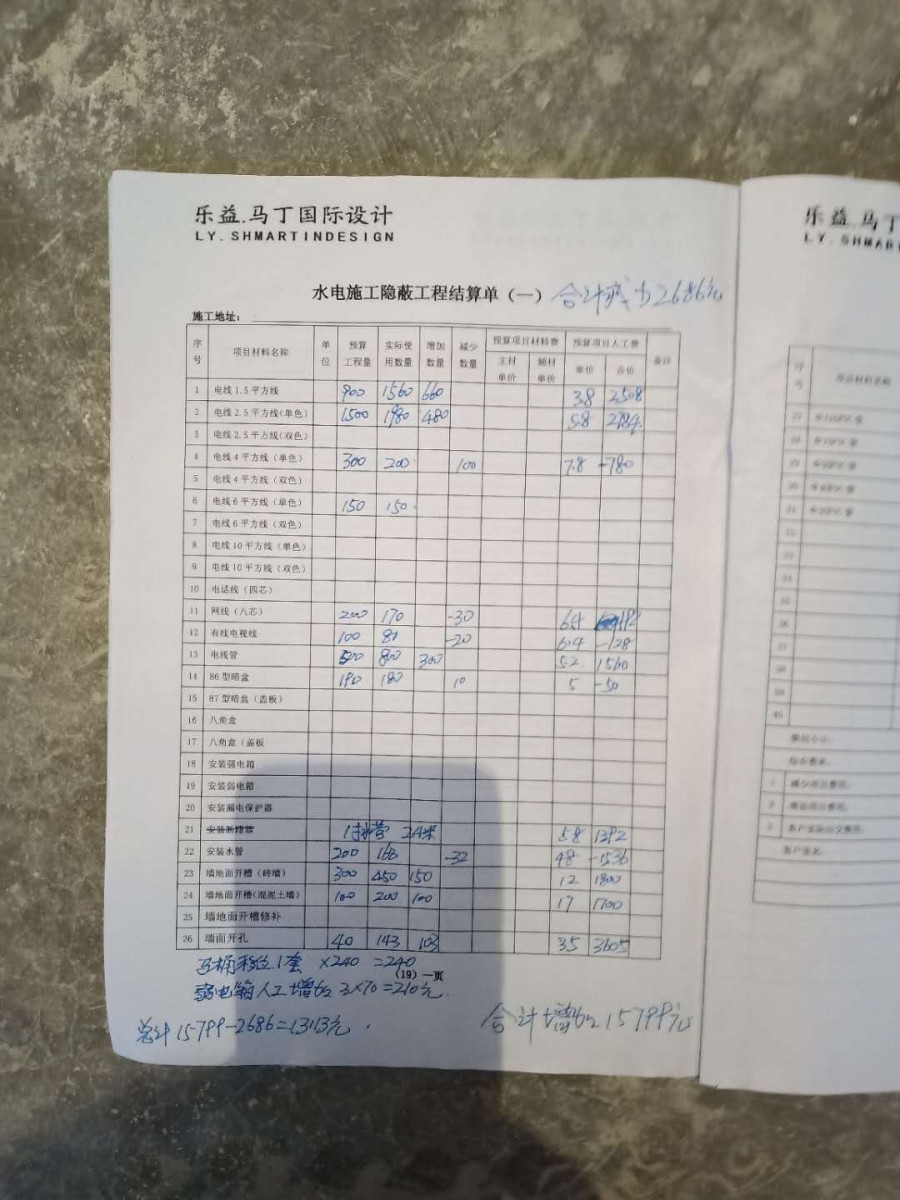 乐益.马丁国际设计
LY. SHMARTINDESIGN
水电施工隐蔽工程结算单（一） 合计减少2686元
施工地址：
序号 项目材料名称 单位 预算工程量 实际使用数量 增加数量 减少数量 预算项目材料费 主材单价 辅材单价 预算项目人工费 单价 合价 备注
1 电线1.5平方线 900 1560 660 3.8 2508
2 电线2.5平方线(单色) 1500 1980 480 5.8 2784
3 电线2.5平方线(双色)
4 电线4平方线（单色） 300 200 100 7.8 -780
5 电线4平方线（双色）
6 电线6平方线（单色） 150 150
7 电线6平方线（双色）
8 电线10平方线（单色）
9 电线10平方线（双色）
10 电话线（四芯）
11 网线（八芯） 200 170 -30 6.4 -192
12 有线电视线 100 80 -20 6.4 -128
13 电线管 500 800 300 5.2 1560
14 86型暗盒 190 180 10 5 -50
15 87型暗盒（盖板）
16 八角盒
17 八角盒（盖板
18 安装强电箱
19 安装弱电箱
20 安装漏电保护器
21 安装断路器 排水管 24米 58 1392
22 安装水管 200 168 -32 48 -1536
23 墙地面开槽（砖墙） 300 450 150 12 1800
24 墙地面开槽(混泥土墙) 100 200 100 17 1700
25 墙地面开槽修补
26 墙面开孔 40 143 103 35 3605
马桶移位1套 ×240 =240
(19) 一页
弱电箱人工增加3×70=210元.
总计15799-2686=13113元.
合计增加15799元
乐益.马丁
LY. SHMAR
序号 项目材料名称